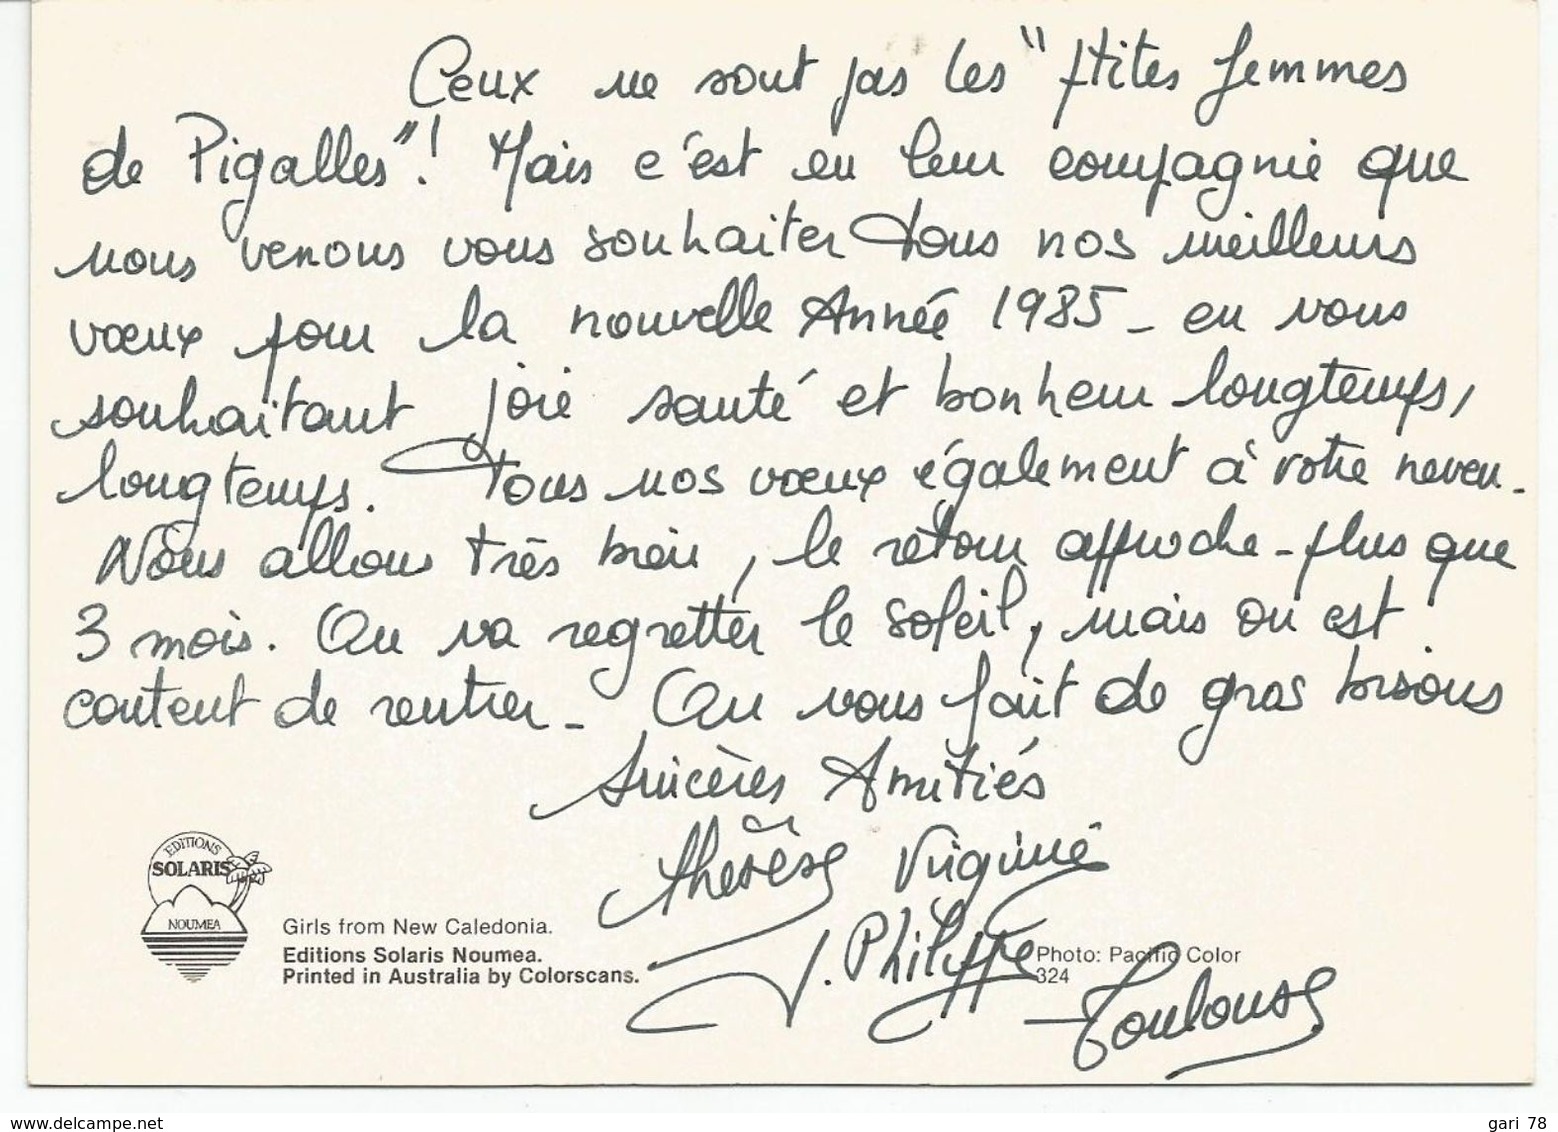 Ceux ne sont pas les "ptites femmes
de Pigalles"! Mais c'est en leur compagnie que
nous venons vous souhaiter tous nos meilleurs
vœux pour la nouvelle Année 1985 - en vous
souhaitant joie santé et bonheur longtemps,
longtemps. Tous nos vœux également à votre neveu.
Nous allons très bien, le retour approche - plus que
3 mois. On va regretter le soleil, mais on est
content de rentrer - On vous fait de gros bisous
Sincères Amitiés
Thérèse Virginie
J. Philippe
Toulouse
EDITIONS
SOLARIS
NOUMEA
Girls from New Caledonia.
Editions Solaris Noumea.
Printed in Australia by Colorscans.
Photo: Pacific Color
324
www.delcampe.net
gari 78